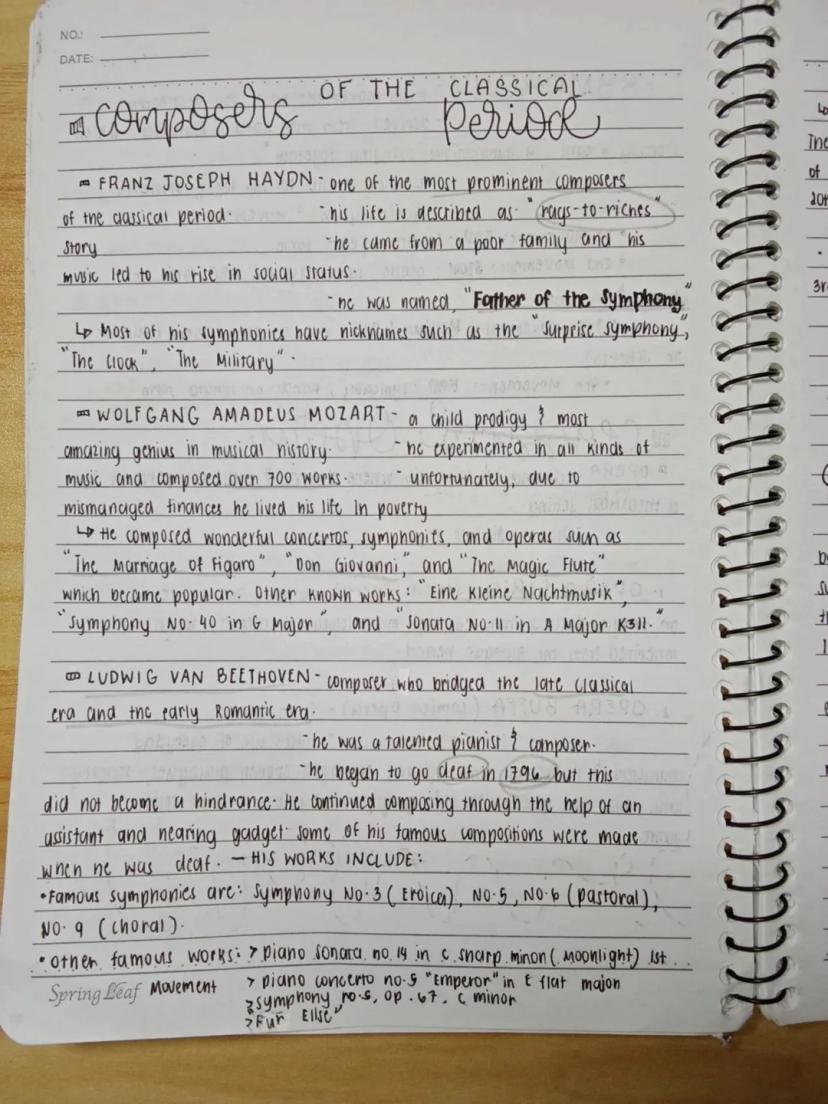 NO.:
DATE:
Composers OF THE CLASSICAL Period
FRANZ JOSEPH HAYDN - one of the most prominent composers
of the classical period. - his life is described as "rags-to-riches"
story - he came from a poor family and his
music led to his rise in social status.
- he was named, "Father of the symphony"
↳ Most of his symphonies have nicknames such as the "Surprise symphony",
"The Clock", "The Military".
WOLFGANG AMADEUS MOZART - a child prodigy & most
amazing genius in musical history. - he experimented in all kinds of
music and composed over 700 works. - unfortunately, due to
mismanaged finances he lived his life in poverty
↳ He composed wonderful concertos, symphonies, and operas such as
"The Marriage of Figaro", "Don Giovanni," and "The Magic Flute"
which became popular. Other known works: "Eine Kleine Nachtmusik",
"Symphony No. 40 in G Major", and "Sonata No. 11 in A Major K311."
LUDWIG VAN BEETHOVEN - composer who bridged the late classical
era and the early Romantic era.
- he was a talented pianist & composer.
- he began to go deaf in 1796 but this
did not become a hindrance. He continued composing through the help of an
assistant and hearing gadget. some of his famous compositions were made
when he was deaf. — HIS WORKS INCLUDE:
• Famous symphonies are: Symphony No. 3 (Eroica), No. 5, No. 6 (pastoral),
No. 9 (choral).
• other famous works: > piano sonara no. 14 in c sharp minon (Moonlight) 1st
SpringLeaf Movement > piano concerto no. 5 "Emperor" in E flat majon
> symphony no. 5, op. 67. c minor
> Fur Ellse"